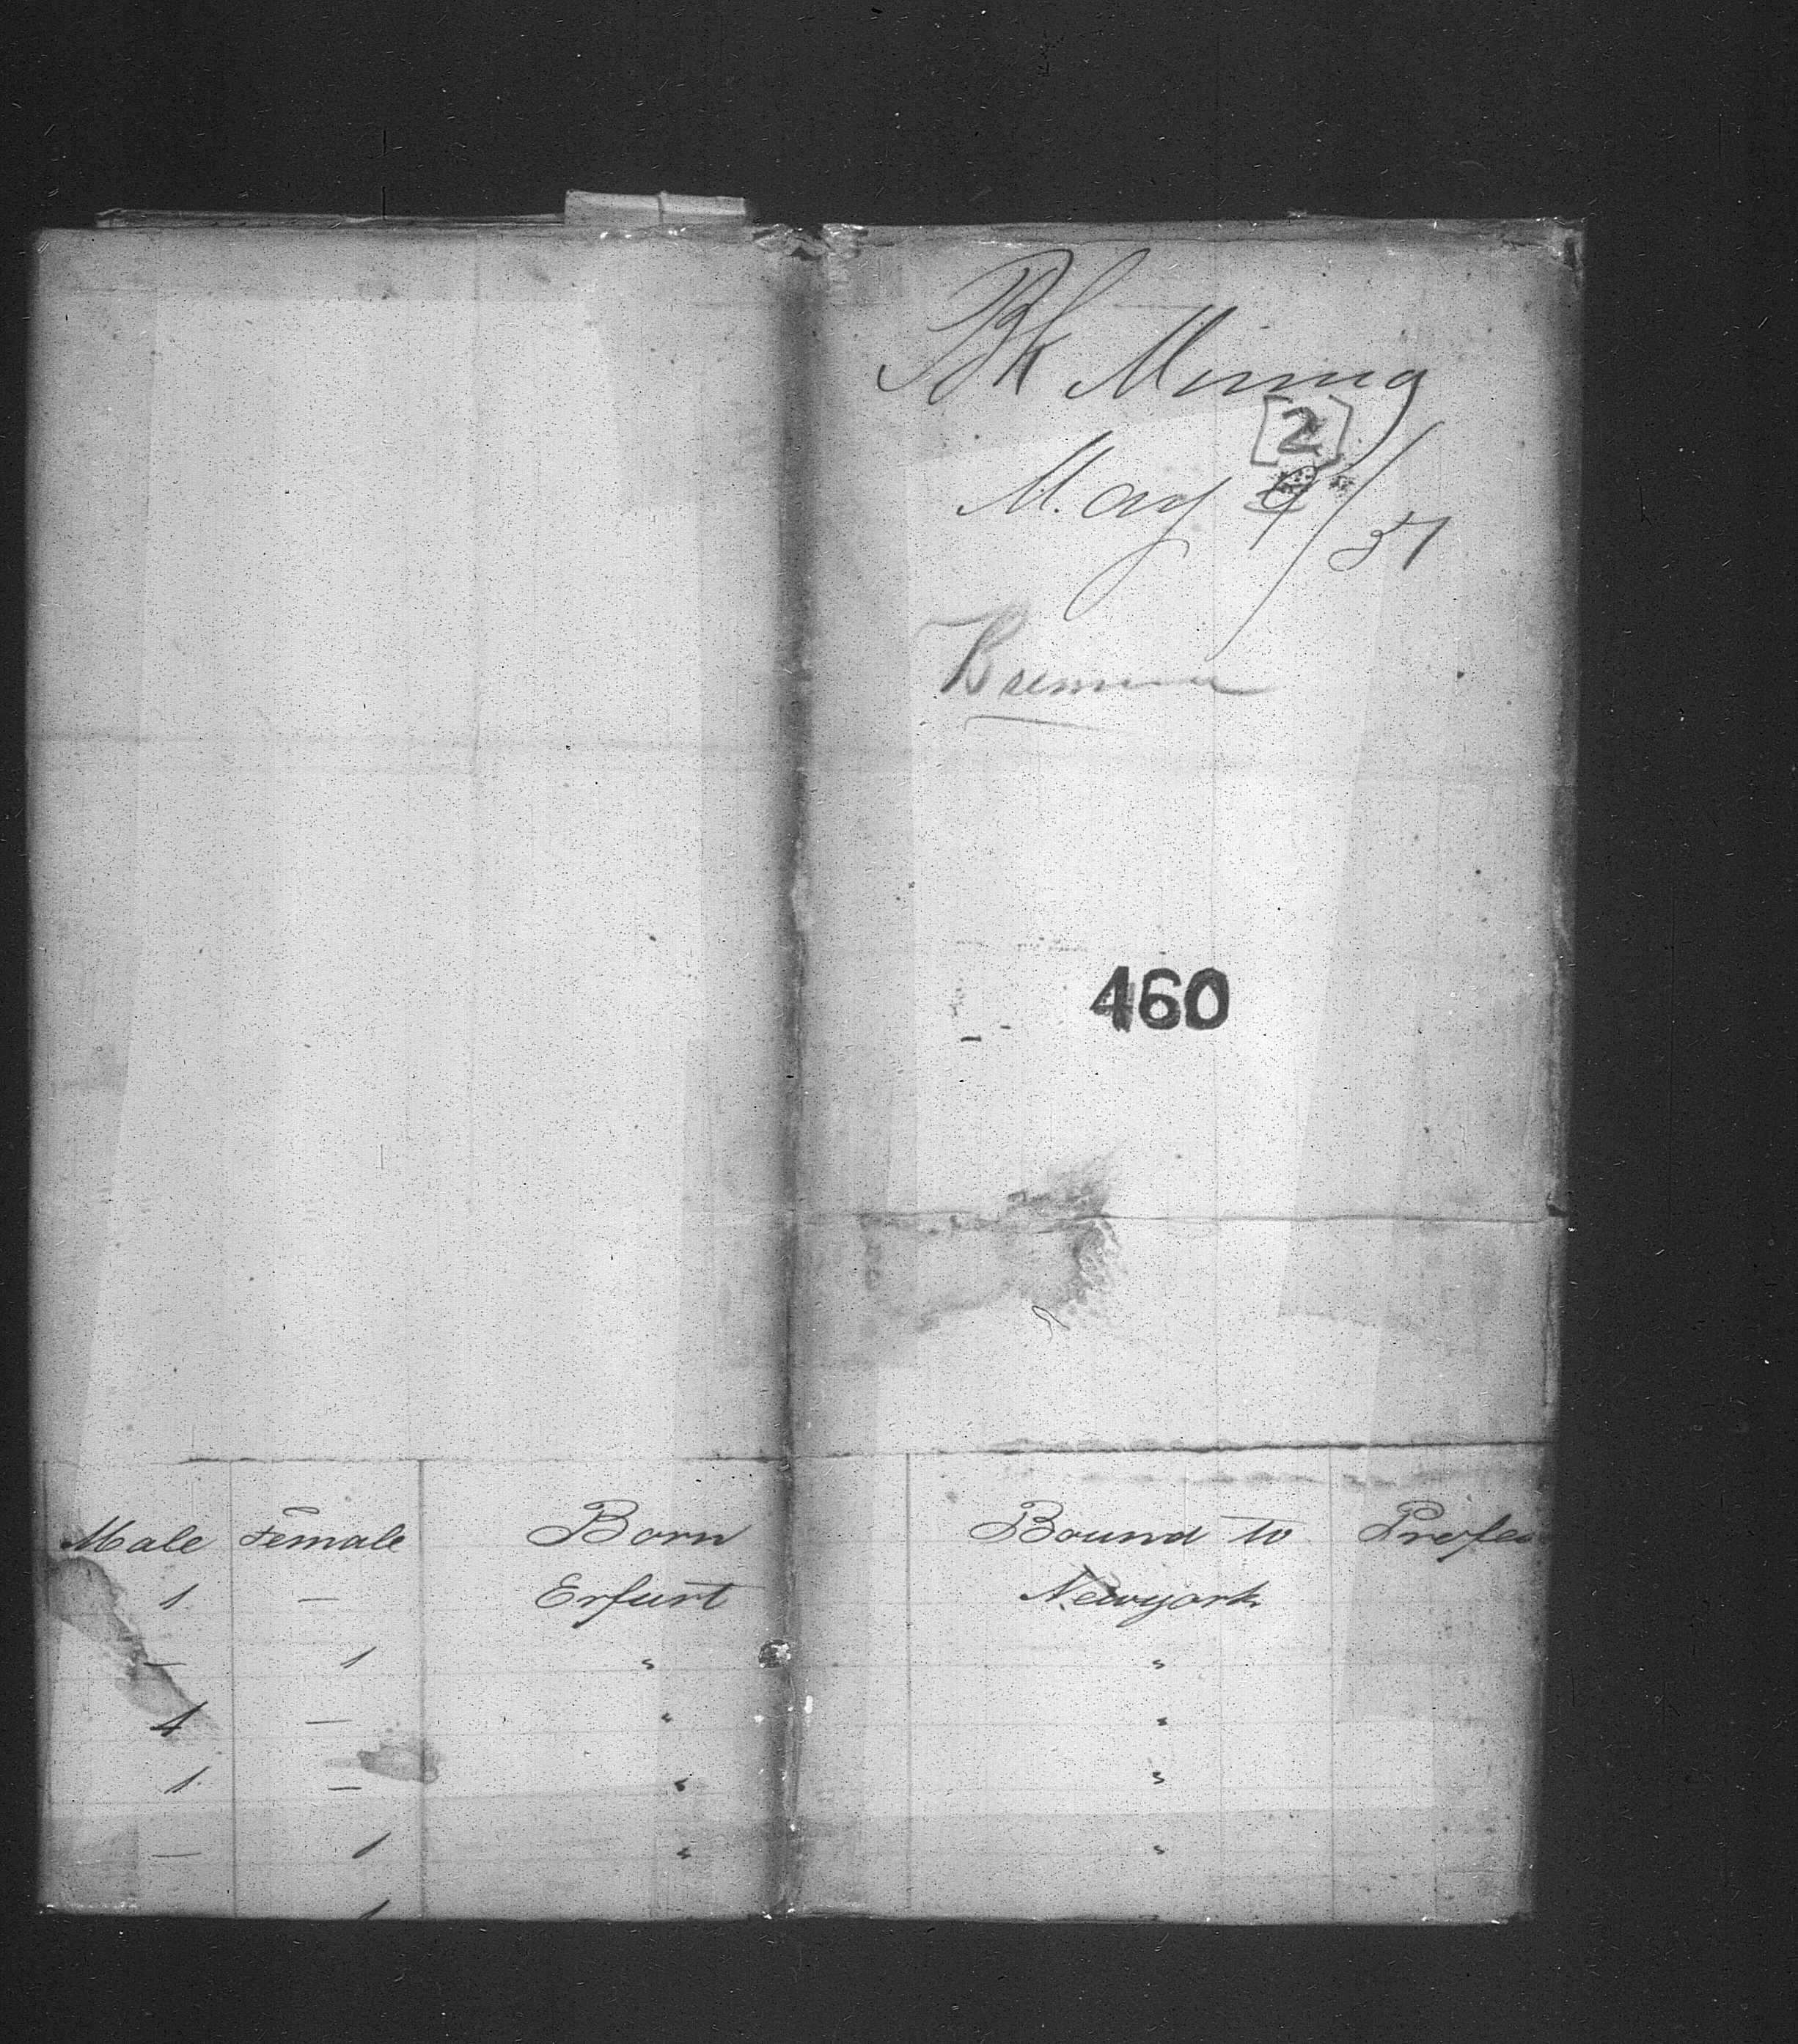 Bk Minna
[2]
May 9/51
Bremen
460
Male Female Born Bound to Profes
1 — Erfurt Newyork
— 1 " "
1 — " "
1 — " "
— 1 " "
1